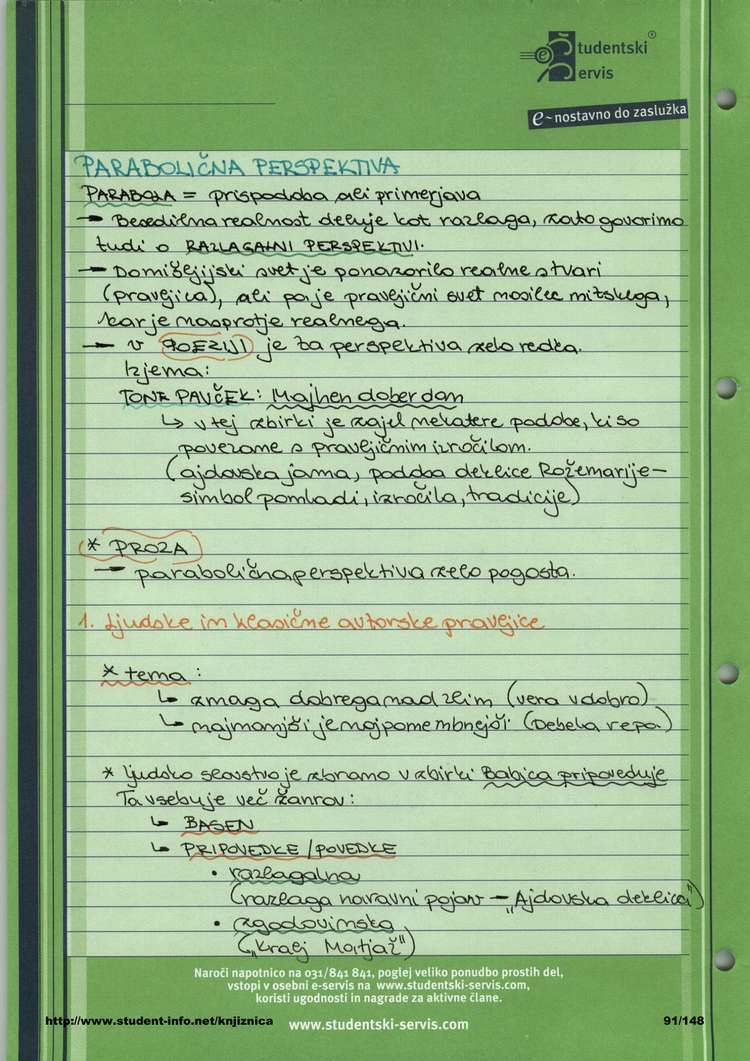 Študentski Servis®
e-nostavno do zaslužka
PARABOLIČNA PERSPEKTIVA
PARABOLA = prispodoba ali primerjava
→ Besedilna realnost deluje kot razlaga, zato govorimo
tudi o RAZLAGALNI PERSPEKTIVI.
→ Domišljijski svet je ponazorilo realne stvari
(pravljica), ali pa je pravljični svet nosilec mitskega,
kar je nasprotje realnega.
→ v POEZIJI je ta perspektiva zelo redka.
Izjema:
TONE PAVČEK: Majhen dober dan
↳ v tej zbirki je zajel nekatere podobe, ki so
povezane s pravljičnim izročilom.
(ajdovska jama, podoba deklice Rožemarije –
simbol pomladi, izročila, tradicije)
* PROZA
→ parabolična perspektiva zelo pogosta.
1. Ljudske in klasične avtorske pravljice
* tema:
↳ zmaga dobrega nad zlim (vera v dobro)
↳ najmanjši je najpomembnejši (Debela repa)
* ljudsko slovstvo je zbrano v zbirki Babica pripoveduje
Ta vsebuje več žanrov:
↳ BASEN
↳ PRIPOVEDKE / POVEDKE
• razlagalna
(razlaga naravni pojav – „Ajdovska deklica")
• zgodovinska
(„Kralj Matjaž")
Naroči napotnico na 031/841 841, poglej veliko ponudbo prostih del,
vstopi v osebni e-servis na www.studentski-servis.com,
koristi ugodnosti in nagrade za aktivne člane.
http://www.student-info.net/knjiznica www.studentski-servis.com 91/148